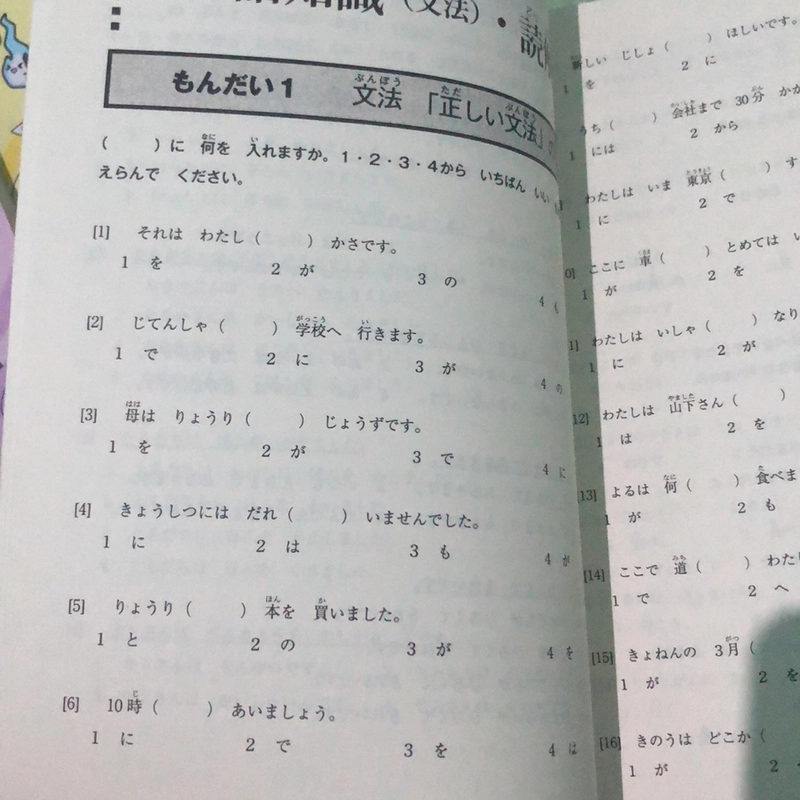 （文法）・読
もんだい1 文法 「正しい文法」の
（ ）に 何を 入れますか。1・2・3・4から いちばん いい
えらんで ください。
[1] それは わたし（ ）かさです。
1 を 2 が 3 の 4
[2] じてんしゃ（ ）学校へ 行きます。
1 で 2 に 3 が 4 の
[3] 母は りょうり（ ）じょうずです。
1 を 2 が 3 で 4 に
[4] きょうしつには だれ（ ）いませんでした。
1 に 2 は 3 も 4 が
[5] りょうり（ ）本を 買いました。
1 と 2 の 3 が 4 を
[6] 10時（ ）あいましょう。
1 に 2 で 3 を 4 は
新しい じしょ（ ）ほしいです。
1 を 2 に
うち（ ）会社まで 30分 かか
1 には 2 から
わたしは いま 東京（ ）す
1 に 2 で
ここに 車（ ）とめては い
1 が 2 を
わたしは いしゃ（ ）なり
1 に 2 が
[12] わたしは 山下さん（ ）
1 は 2 を
[13] よるは 何（ ）食べま
1 が 2 も
[14] ここで 道（ ）わたり
1 で 2 へ
[15] きょねんの 3月（
1 が 2 を
[16] きのうは どこか（
1 が 2